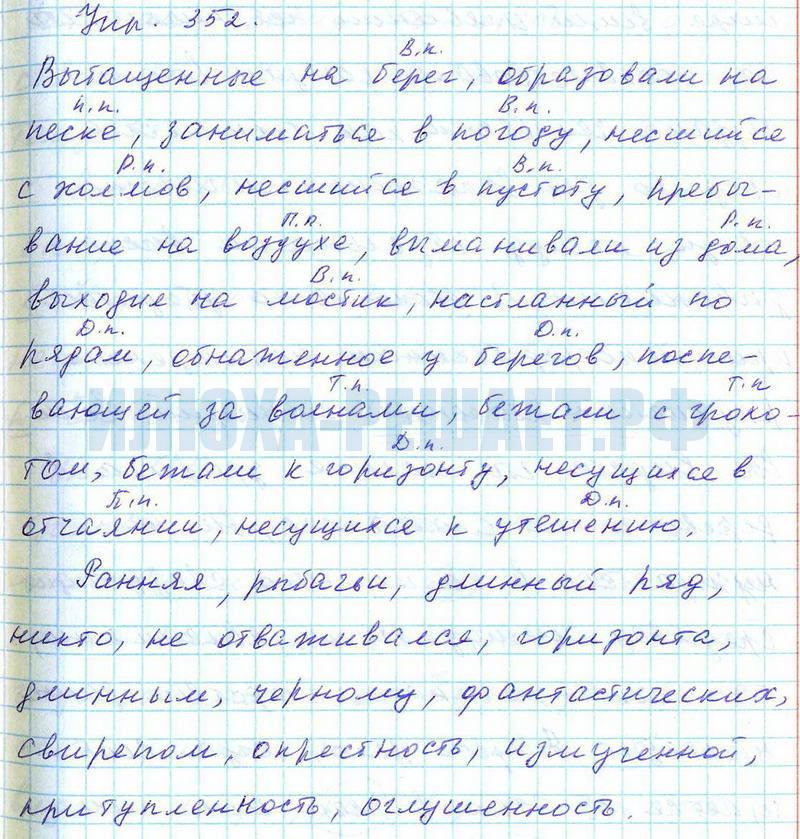 Упр. 352.
В.п.
Вытащенные на берег, образовали на
П.п. В.п.
песке, заниматься в погоду, несшийся
Р.п. В.п.
с холмов, несшийся в пустоту, пребы-
П.п. Р.п.
вание на воздухе, выманивали из дома,
В.п.
выходил на мостик, настланный по
Д.п. Д.п.
рядам, обнаженное у берегов, поспе-
Т.п. Т.п
вающей за волнами, бежали с грохо-
Д.п.
том, бежали к горизонту, несущихся в
П.п. Д.п.
отчаянии, несущихся к утешению.
Ранняя, рыбачьи, длинный ряд,
никто, не отваживался, горизонта,
длинным, черному, фантастических,
свирепом, опрестность, измученной,
притупленность, оглушенность.
ИЛЮХА-РЕШАЕТ.РФ